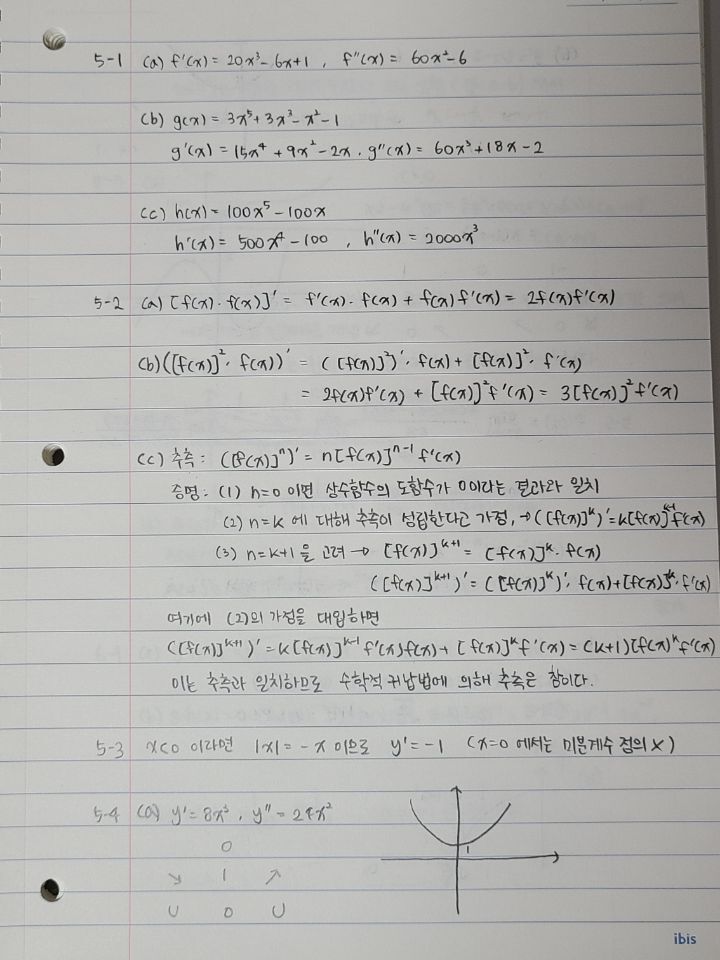 5-1 (a) f'(x) = 20x³ - 6x + 1 , f''(x) = 60x² - 6
(b) g(x) = 3x⁵ + 3x³ - x² - 1
g'(x) = 15x⁴ + 9x² - 2x . g''(x) = 60x³ + 18x - 2
(c) h(x) = 100x⁵ - 100x
h'(x) = 500x⁴ - 100 , h''(x) = 2000x³
5-2 (a) [f(x) · f(x)]' = f'(x) · f(x) + f(x) f'(x) = 2f(x)f'(x)
(b) ([f(x)]² · f(x))' = ([f(x)]²)' · f(x) + [f(x)]² · f'(x)
= 2f(x)f'(x) + [f(x)]² f'(x) = 3[f(x)]² f'(x)
(c) 추측 : ([f(x)]ⁿ)' = n[f(x)]ⁿ⁻¹ f'(x)
증명 : (1) n=0 이면 상수함수의 도함수가 0이라는 결과와 일치
(2) n=k 에 대해 추측이 성립한다고 가정, → ([f(x)]ᵏ)' = k[f(x)]ᵏ⁻¹ f'(x)
(3) n=k+1 을 고려 → [f(x)]ᵏ⁺¹ = [f(x)]ᵏ · f(x)
([f(x)]ᵏ⁺¹)' = ([f(x)]ᵏ)' · f(x) + [f(x)]ᵏ · f'(x)
여기에 (2)의 가정을 대입하면
([f(x)]ᵏ⁺¹)' = k[f(x)]ᵏ⁻¹ f'(x) f(x) + [f(x)]ᵏ f'(x) = (k+1)[f(x)ᵏ f'(x)
이는 추측과 일치하므로 수학적 귀납법에 의해 추측은 참이다.
5-3 x<0 이라면 |x| = -x 이므로 y' = -1 (x=0 에서는 미분계수 정의 X)
5-4 (a) y' = 8x³ , y'' = 24x²
0
↘ 1 ↗
∪ 0 ∪
1
ibis